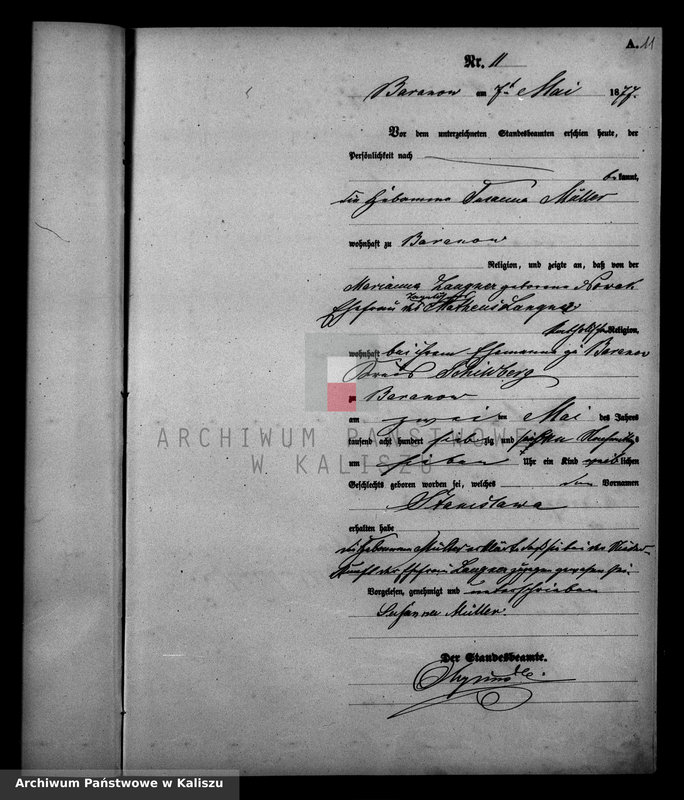 A. 11
Nr. 11
Baranow am 7t Mai 1877.
Vor dem unterzeichneten Standesbeamten erschien heute, der
Persönlichkeit nach
bekannt,
die Hebamme Susanna Müller
wohnhaft zu Baranow
Religion, und zeigte an, daß von der
Marianna Langner geborene Nowak
Ehefrau des Matheus Langner
katholischer Religion,
wohnhaft bei ihrem Ehemanne zu Baranow
Kreis Schildberg
zu Baranow
am zwei Mai des Jahres
tausend acht hundert siebzig und sieben Vormittags
um sieben Uhr ein Kind weiblichen
Geschlechts geboren worden sei, welches den Vornamen
Stanislawa
erhalten habe
die Hebamme Müller erklärte daß sie bei der Nieder-
kunft der Ehefrau Langner zugegen gewesen sei.
Vorgelesen, genehmigt und unterschrieben
Susanna Müller.
Der Standesbeamte.
ARCHIWUM PAŃSTWOWE
W KALISZU
Archiwum Państwowe w Kaliszu